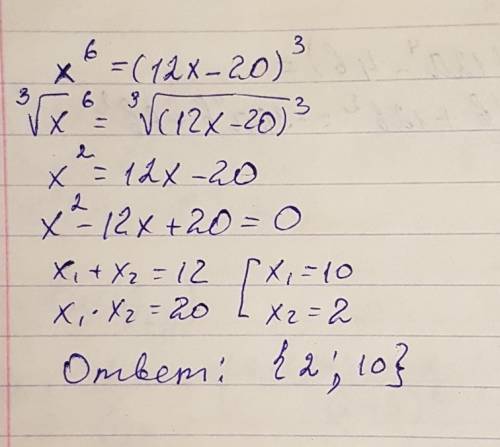 x⁶ = (12x – 20)³
³√x⁶ = ³√(12x – 20)³
x² = 12x – 20
x² – 12x + 20 = 0
x₁ + x₂ = 12 [ x₁ = 10
x₁ · x₂ = 20 x₂ = 2
Ответ: {2; 10}